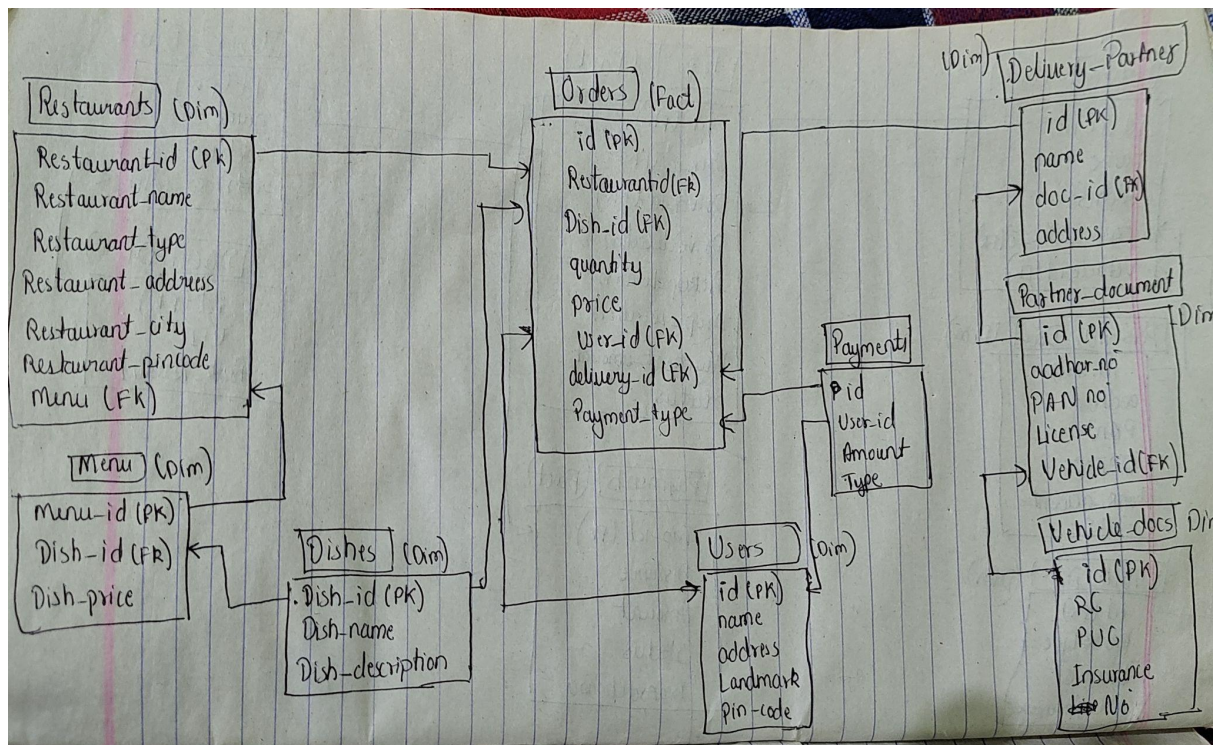 Restaurants (Dim)
Restaurant_id (PK)
Restaurant_name
Restaurant_type
Restaurant_address
Restaurant_city
Restaurant_pincode
Menu (FK)
Menu (Dim)
Menu_id (PK)
Dish_id (FK)
Dish_price
Dishes (Dim)
Dish_id (PK)
Dish_name
Dish_description
Orders (Fact)
id (PK)
Restaurantid (FK)
Dish_id (FK)
quantity
price
User_id (FK)
delivery_id (FK)
Payment_type
Payments
id
User_id
Amount
Type
Users (Dim)
id (PK)
name
address
Landmark
pin-code
(Dim) Delivery_Partner
id (PK)
name
doc_id (FK)
address
Partner_document
Dim
id (PK)
aadhar_no
PAN no
License
Vehicle_id (FK)
Vehicle_docs Dim
id (PK)
RC
PUC
Insurance
No